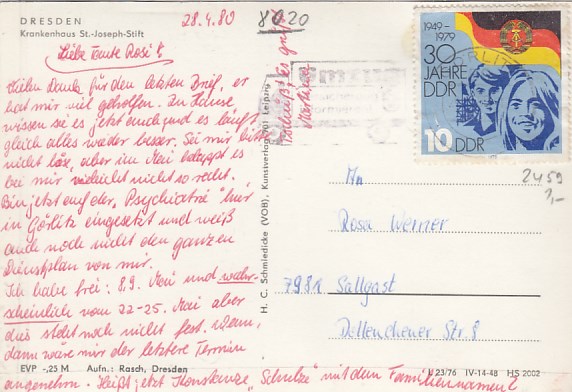 DRESDEN
Krankenhaus St.-Joseph-Stift
28.4.80
8020
Liebe Tante Rosi!
Vielen Dank für den letzten Brief, er
hat mir viel geholfen. Zu Hause
wissen sie es jetzt auch und es läuft
gleich alles wieder besser. Sei mir bitte
nicht böse, aber im Mai klappt es
bei mir vielleicht nicht so recht.
Bin jetzt auf der „Psychiatrie" hier
in Görlitz eingesetzt und weiß
auch noch nicht den ganzen
Dienstplan von mir.
Ich habe frei: 8.9. Mai und wahr-
scheinlich vom 22-25. Mai aber
das steht noch nicht fest. Wenn,
dann wäre mir der letztere Termin
angenehm. Heißt jetzt Konstanze „Schulze" mit dem Familiennamen?
Tschüß! Es grüßt
EVP -,25 M Aufn.: Rasch, Dresden
H. C. Schmiedicke (VOB), Kunstverlag 701 Leipzig
1949-
1979
30
JAHRE
DDR
10 DDR
2459
An
Rosa Werner
7981 Sallgast
Dollenchener Str. 8
L 23/76 IV-14-48 HS 2002